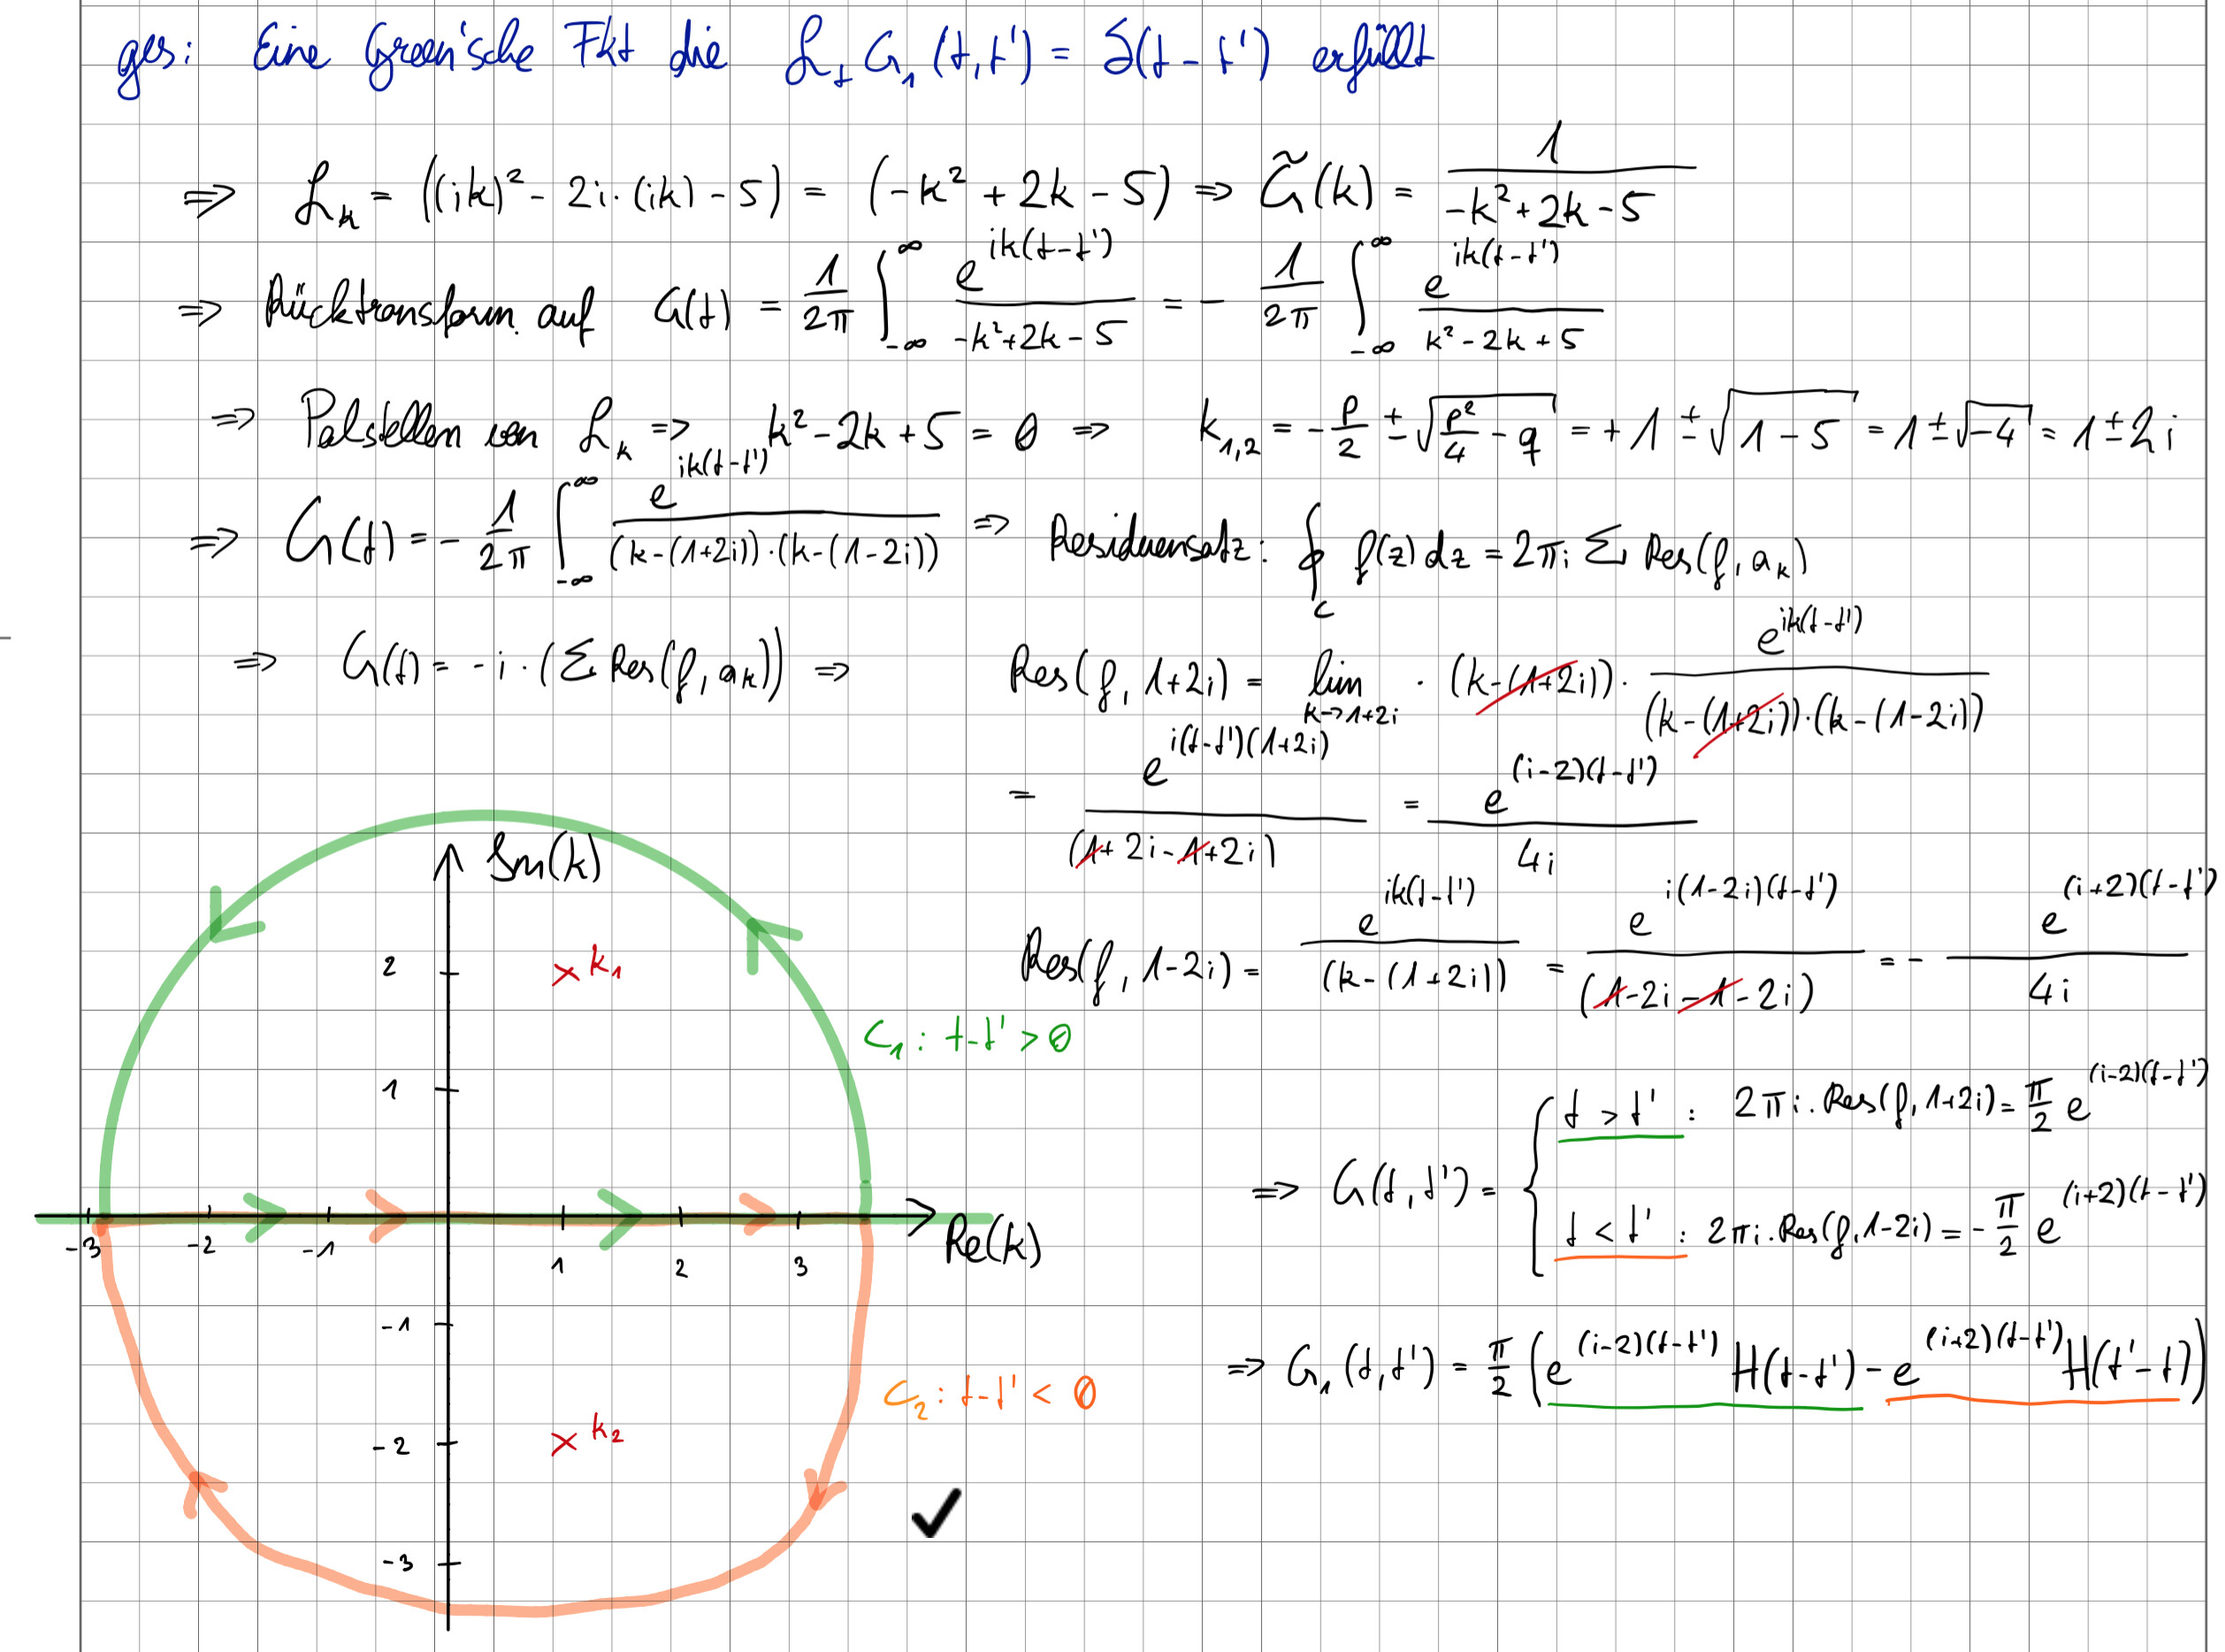 ges: Eine Green'sche Fkt die ℒ_t G₁ (t,t') = δ(t - t') erfüllt
⇒ ℒ_k = ((ik)² - 2i·(ik) - 5) = (-k² + 2k - 5) ⇒ G̃(k) = 1/(-k² + 2k - 5)
⇒ Rücktransform. auf G(t) = 1/(2π) ∫_{-∞}^{∞} e^{ik(t-t')}/(-k²+2k-5) = - 1/(2π) ∫_{-∞}^{∞} e^{ik(t-t')}/(k² - 2k + 5)
⇒ Polstellen von ℒ_k ⇒ k² - 2k + 5 = 0 ⇒ k_{1,2} = -p/2 ± √(p²/4 - q) = +1 ± √(1 - 5) = 1 ± √-4 = 1 ± 2i
⇒ G(t) = - 1/(2π) ∫_{-∞}^{∞} e^{ik(t-t')}/((k-(1+2i))·(k-(1-2i))) ⇒ Residuensatz: ∮_C f(z) dz = 2πi Σ Res(f, a_k)
⇒ G(t) = -i · (Σ Res(f, a_k)) ⇒ Res(f, 1+2i) = lim_{k→1+2i} · (k-(1+2i)) · e^{ik(t-t')}/((k-(1+2i))·(k-(1-2i)))
= e^{i(t-t')(1+2i)}/(1+2i-1+2i) = e^{(i-2)(t-t')}/4i
Res(f, 1-2i) = e^{ik(t-t')}/(k-(1+2i)) = e^{i(1-2i)(t-t')}/(1-2i-1-2i) = - e^{(i+2)(t-t')}/4i
⇒ G(t,t') = { t > t' : 2πi·Res(f, 1+2i) = π/2 e^{(i-2)(t-t')}
t < t' : 2πi·Res(f, 1-2i) = - π/2 e^{(i+2)(t-t')}
⇒ G₁(t,t') = π/2 (e^{(i-2)(t-t')} H(t-t') - e^{(i+2)(t-t')} H(t'-t))
Im(k)
2
k₁
C₁: t-t' > 0
1
-3 -2 -1 1 2 3 Re(k)
-1
C₂: t-t' < 0
-2
k₂
-3